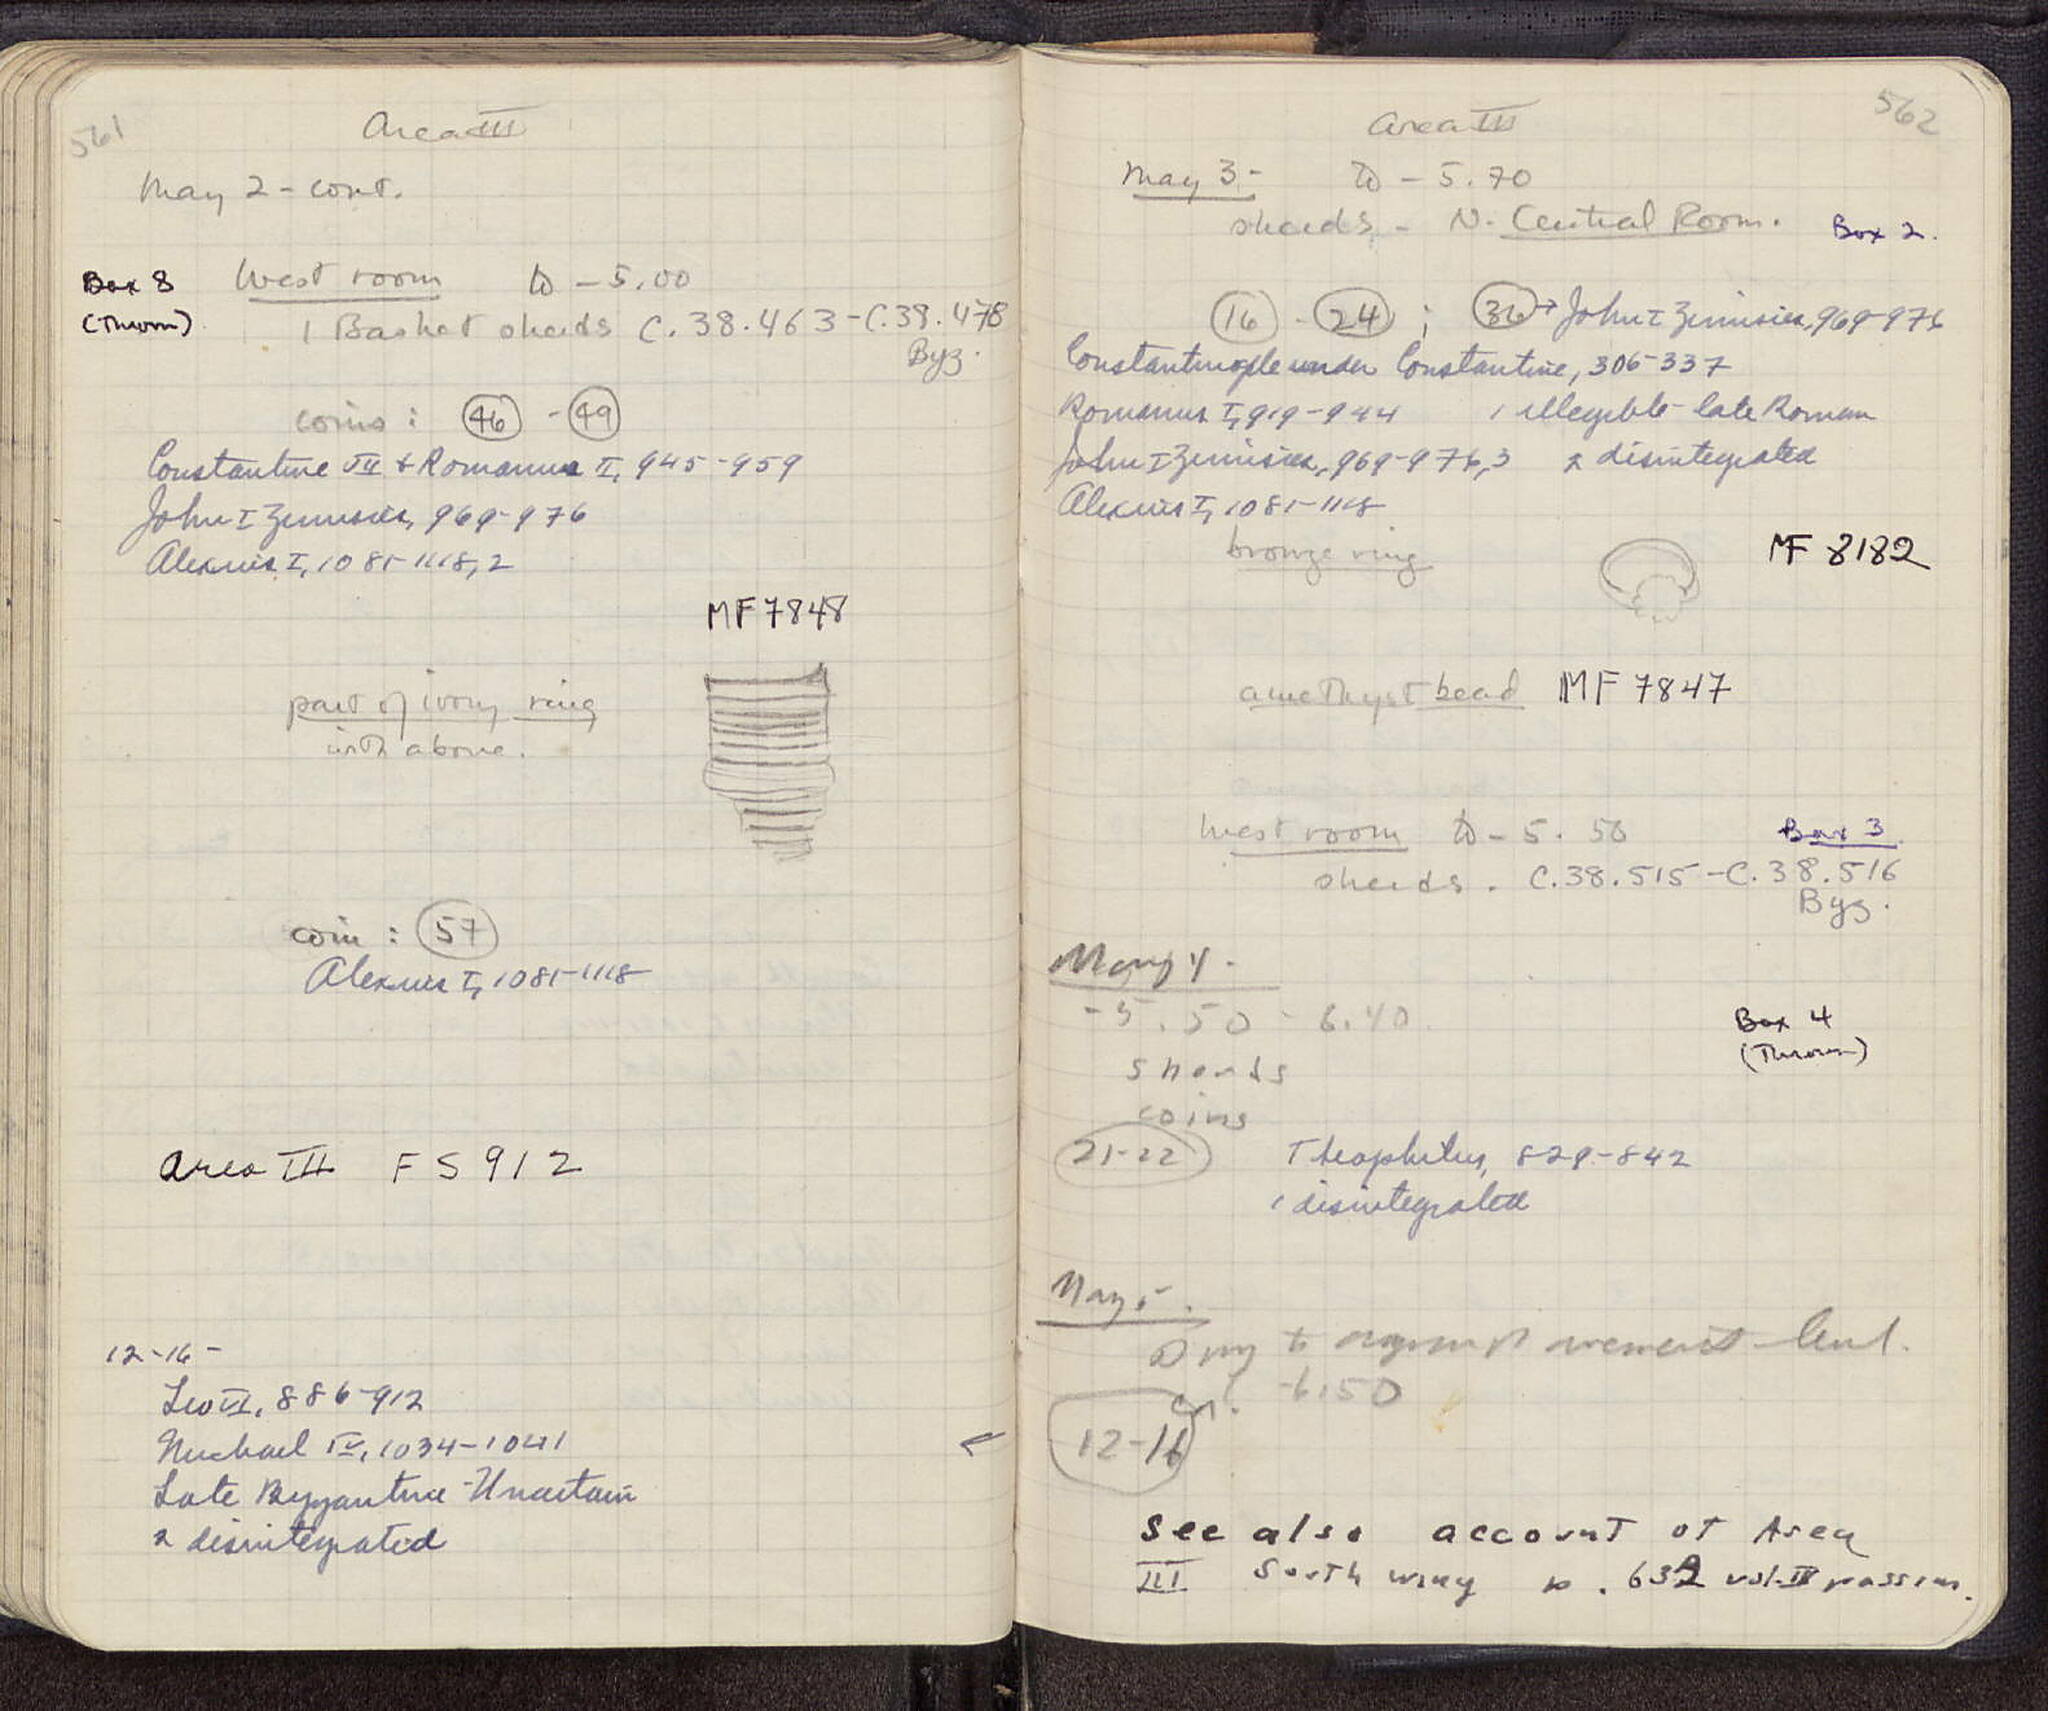 561
Area III
May 2 - cont.
Box 8 West room to - 5.00
(Thrown) 1 Basket sherds C.38.463 - C.38.478
Byz.
coins : 46 - 49
Constantine VII & Romanus II, 945-959
John I Zimisces, 969-976
Alexius I, 1081-1118, 2
MF 7848
part of ivory ring
with above.
coin : 57
Alexius I, 1081-1118
Area III FS 912
12-16 -
Leo VI, 886-912
Michael IV, 1034-1041
Late Byzantine - Uncertain
2 disintegrated
562
Area III
May 3 - to - 5.70
sherds - N. Central Room. Box 2.
16 - 24 ; 36 → John I Zimisces, 969-976
Constantinople under Constantine, 306-337
Romanus I, 919-944 1 illegible - late Roman
John I Zimisces, 969-976, 3 2 disintegrated
Alexius I, 1081-1118
bronze ring MF 8182
amethyst bead MF 7847
West room to - 5.50 Box 3
sherds. C.38.515 - C.38.516
Byz.
May 4 -
- 5.50 - 6.40 Box 4
sherds (Thrown)
coins
21-22 Theophilus, 829-842
1 disintegrated
May 5.
to
-6.50
12-16
See also account of Area
III South wing p. 632 vol. IV passim.